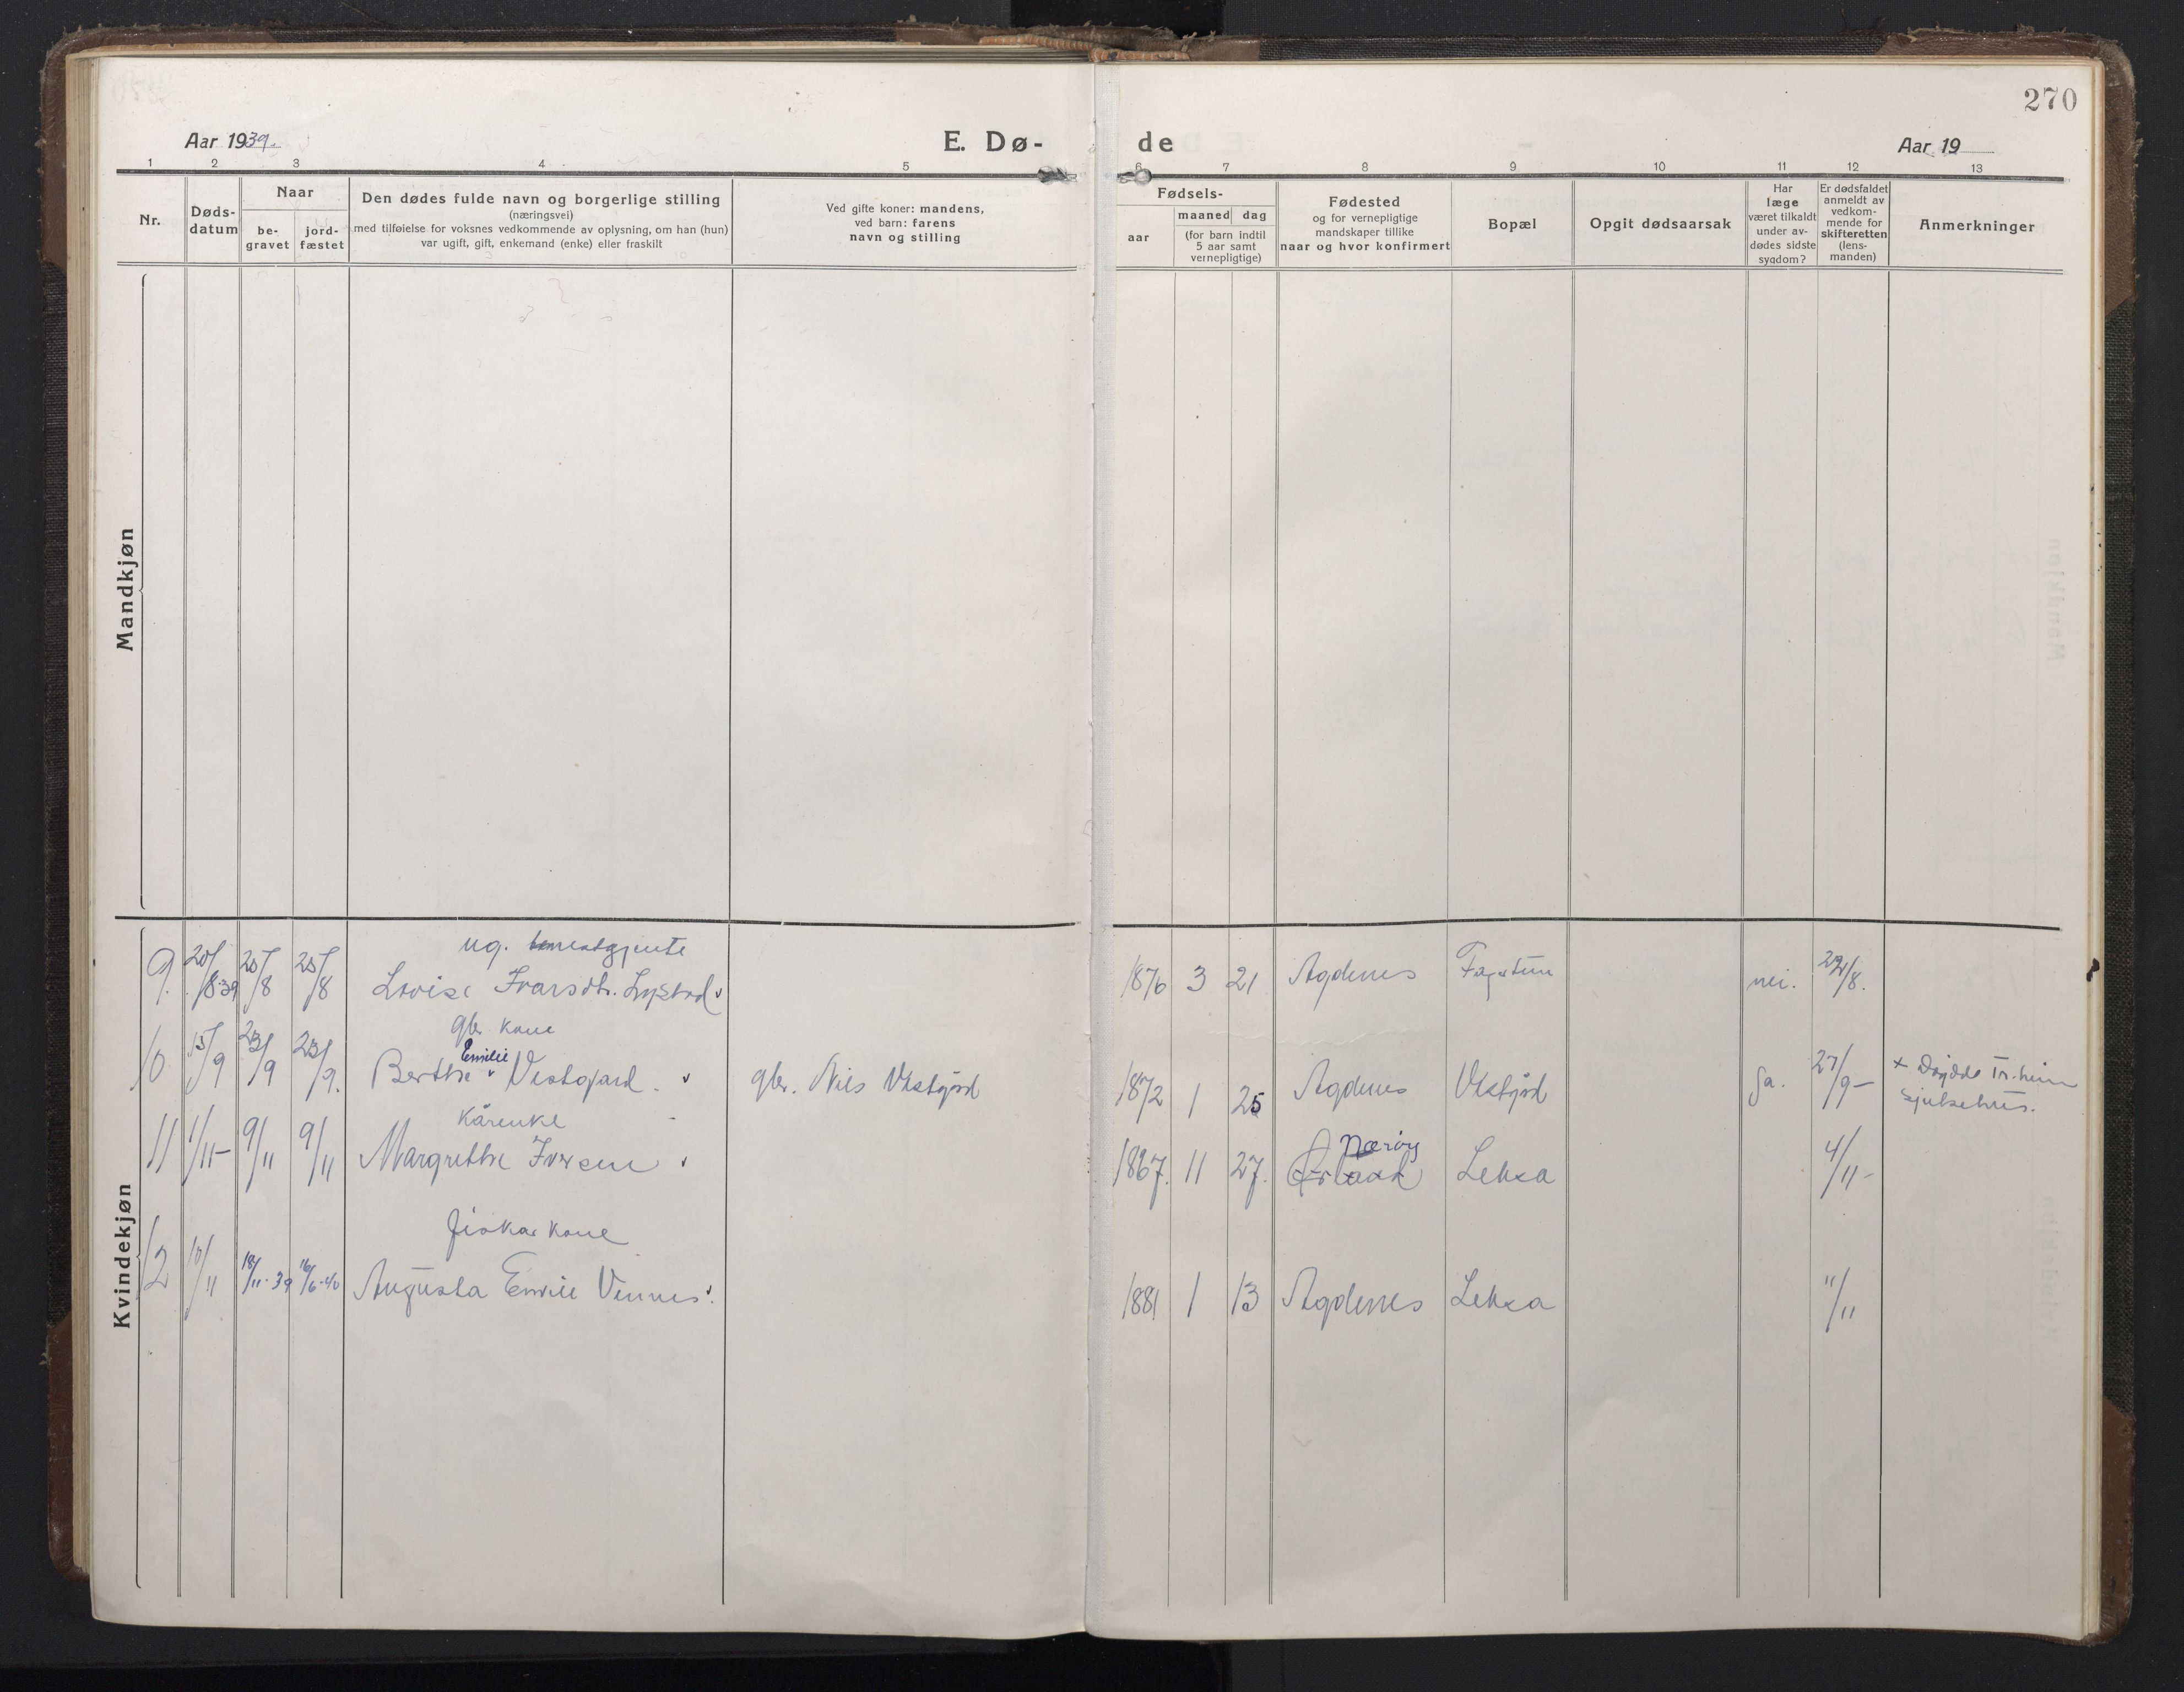 270
Aar 1939.
E. Dø-
de
Aar 19
1 2 3 4 5 6 7 8 9 10 11 12 13
Nr.
Døds-
datum
Naar
be-
gravet
jord-
fæstet
Den dødes fulde navn og borgerlige stilling
(næringsvei)
med tilføielse for voksnes vedkommende av oplysning, om han (hun)
var ugift, gift, enkemand (enke) eller fraskilt
Ved gifte koner: mandens,
ved barn: farens
navn og stilling
Fødsels-
aar
maaned dag
(for barn indtil
5 aar samt
vernepligtige)
Fødested
og for vernepligtige
mandskaper tillike
naar og hvor konfirmert
Bopæl
Opgit dødsaarsak
Har
læge
været tilkaldt
under av-
dødes sidste
sygdom?
Er dødsfaldet
anmeldt av
vedkom-
mende for
skifteretten
(lens-
manden)
Anmerkninger
Mandkjøn
Kvindekjøn
ug.
9. 20/8-39 25/8 25/8 Lovise Ivarsdtr. 1876 3 21 Agdenes nei.
gbr kone
Emilie
10 15/9 23/9 23/9. Berthe Vestgjard. gbr. Nils 1872 1 25 Agdenes Ja. 27/9-
Tr.heim
sjukehus.
Kårenke
11 1/11- 9/11 9/11 Margrethe Iversen 1867. 11 27. Nærøy Leksa 4/11-
fiskarkone
12 10/11 18/11-39 16/6-40 Augusta Emilie Vennes. 1881 1 13 Agdenes Leksa 11/11